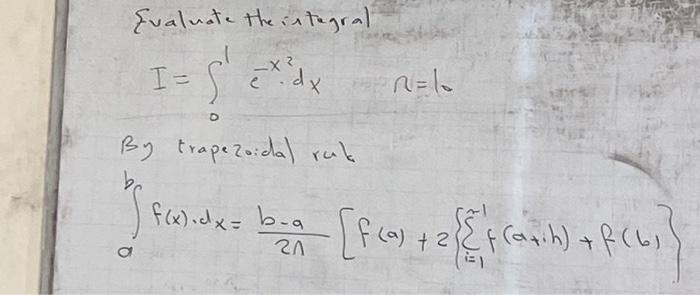 Evaluate the integral
I = ∫₀¹ e^{-x²}.dx n=10
By trapezoidal rule
∫ₐᵇ f(x).dx = \frac{b-a}{2n} [f(a) + 2{∑_{i=1}^{n-1} f(a+ih) + f(b)}